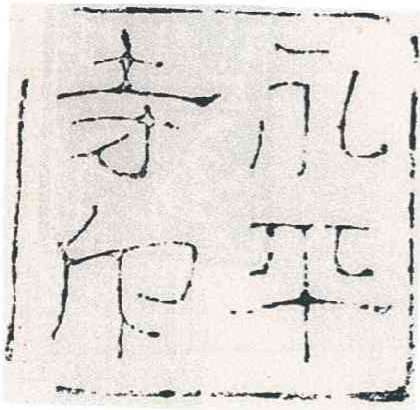 永平
寺印